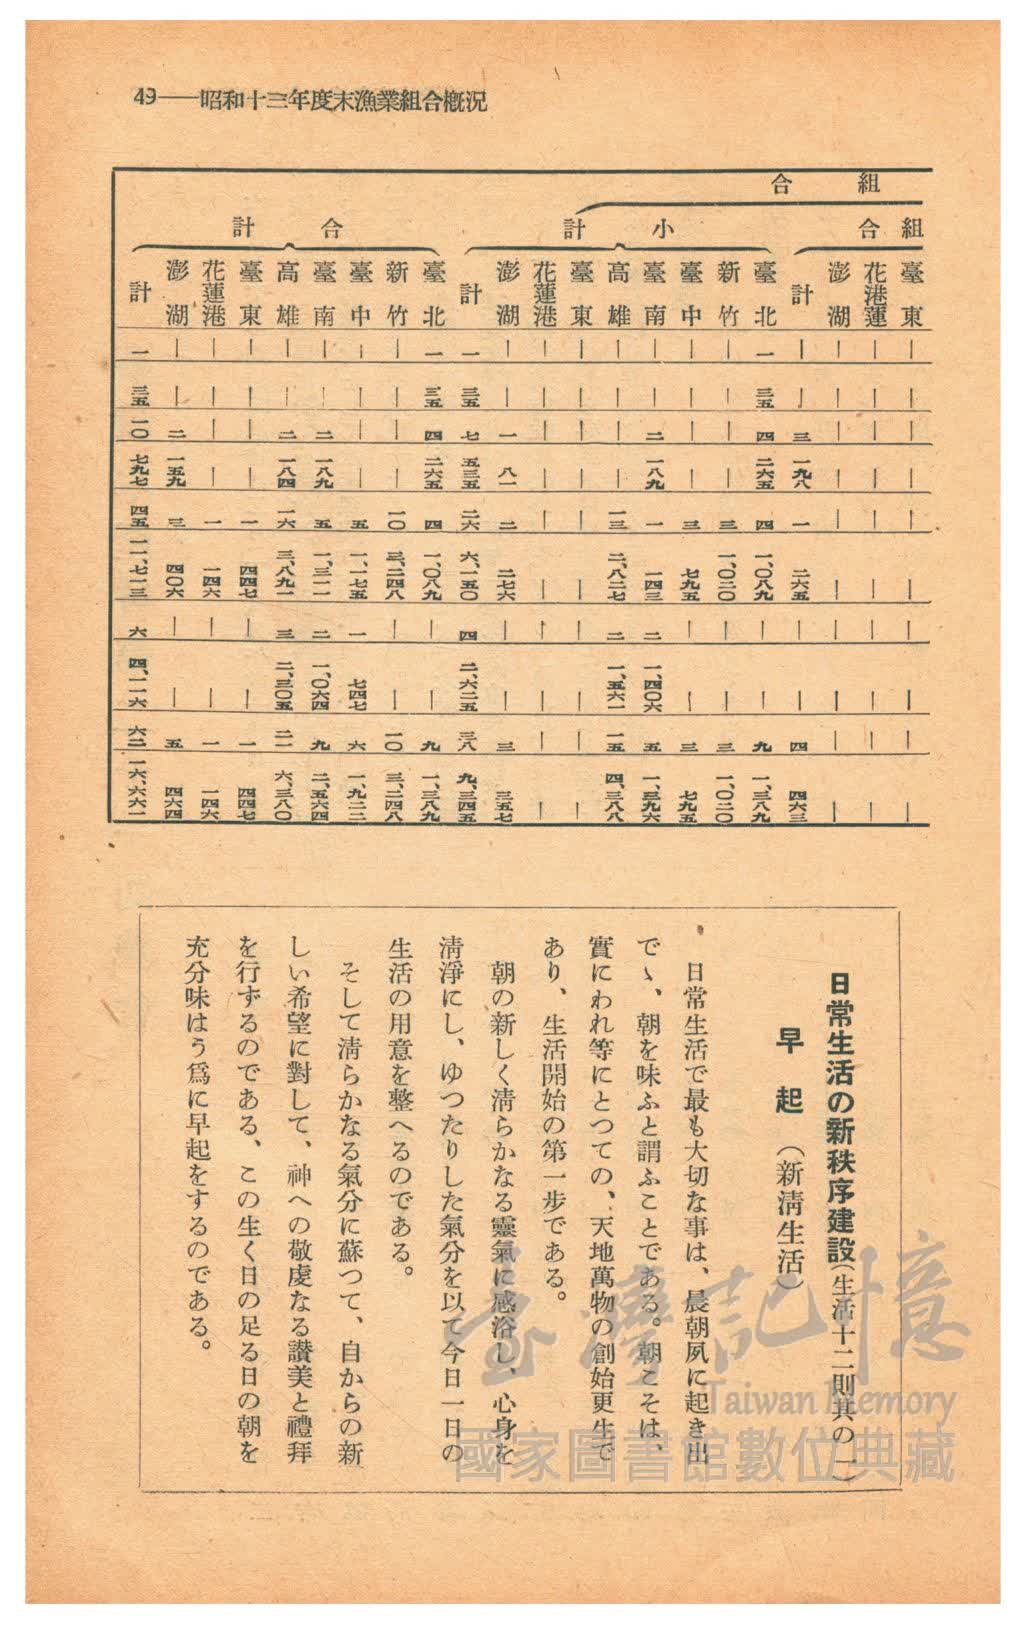 49——昭和十三年度末漁業組合概況
組合
組合
臺東 — — — — — — — — — —
花港蓮 — — — — — — — — — —
澎湖 — — — — — — — — — —
計 — — 三 一九八 一 二六五 — — 四 四六三
小計
臺北 一 三五 四 二六五 四 一、〇八九 — — 九 一、三八九
新竹 — — — — 三 一、〇二〇 — — 三 一、〇二〇
臺中 — — — — 三 七九五 — — 三 七九五
臺南 — — 二 一八九 一 一四三 二 一、四〇六 五 一、三九六
高雄 — — — — 一三 二、八二七 二 一、五六一 一五 四、三八八
臺東 — — — — — — — — — —
花蓮港 — — — — — — — — — —
澎湖 — — 一 八一 二 二七六 — — 三 三五七
計 一 三五 七 五三五 二六 六、一五〇 四 二、六二五 三八 九、三四五
合計
臺北 一 三五 四 二六五 四 一、〇八九 — — 九 一、三八九
新竹 — — — — 一〇 三、二四八 — — 一〇 三、二四八
臺中 — — — — 五 一、一七五 一 七四七 六 一、九二二
臺南 — — 二 一八九 五 一、三一一 二 一、〇六四 九 二、五六四
高雄 — — 二 一八四 一六 三、八九一 三 二、三〇五 二一 六、三八〇
臺東 — — — — 一 四四七 — — 一 四四七
花蓮港 — — — — 一 一四六 — — 一 一四六
澎湖 — — 二 一五九 三 四〇六 — — 五 四六四
計 一 三五 一〇 七九七 四五 一一、七一三 六 四、一一六 六二 一六、六六一
日常生活の新秩序建設(生活十二則其の一)
早起(新淸生活)
日常生活で最も大切な事は、晨朝夙に起き出
でゝ、朝を味ふと謂ふことである。朝こそは、
實にわれ等にとつての、天地萬物の創始更生で
あり、生活開始の第一步である。
朝の新しく淸らかなる靈氣に感浴し、心身を
淸淨にし、ゆつたりした氣分を以て今日一日の
生活の用意を整へるのである。
そして淸らかなる氣分に蘇つて、自からの新
しい希望に對して、神への敬虔なる讃美と禮拜
を行ずるのである、この生く日の足る日の朝を
充分味はう爲に早起をするのである。
臺灣記憶
Taiwan Memory
國家圖書館數位典藏